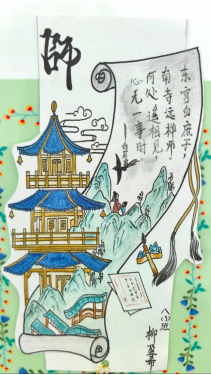 師
东宫白庶子，
南寺远禅师。
何处遥相见，
心无一事时。
八(3)班